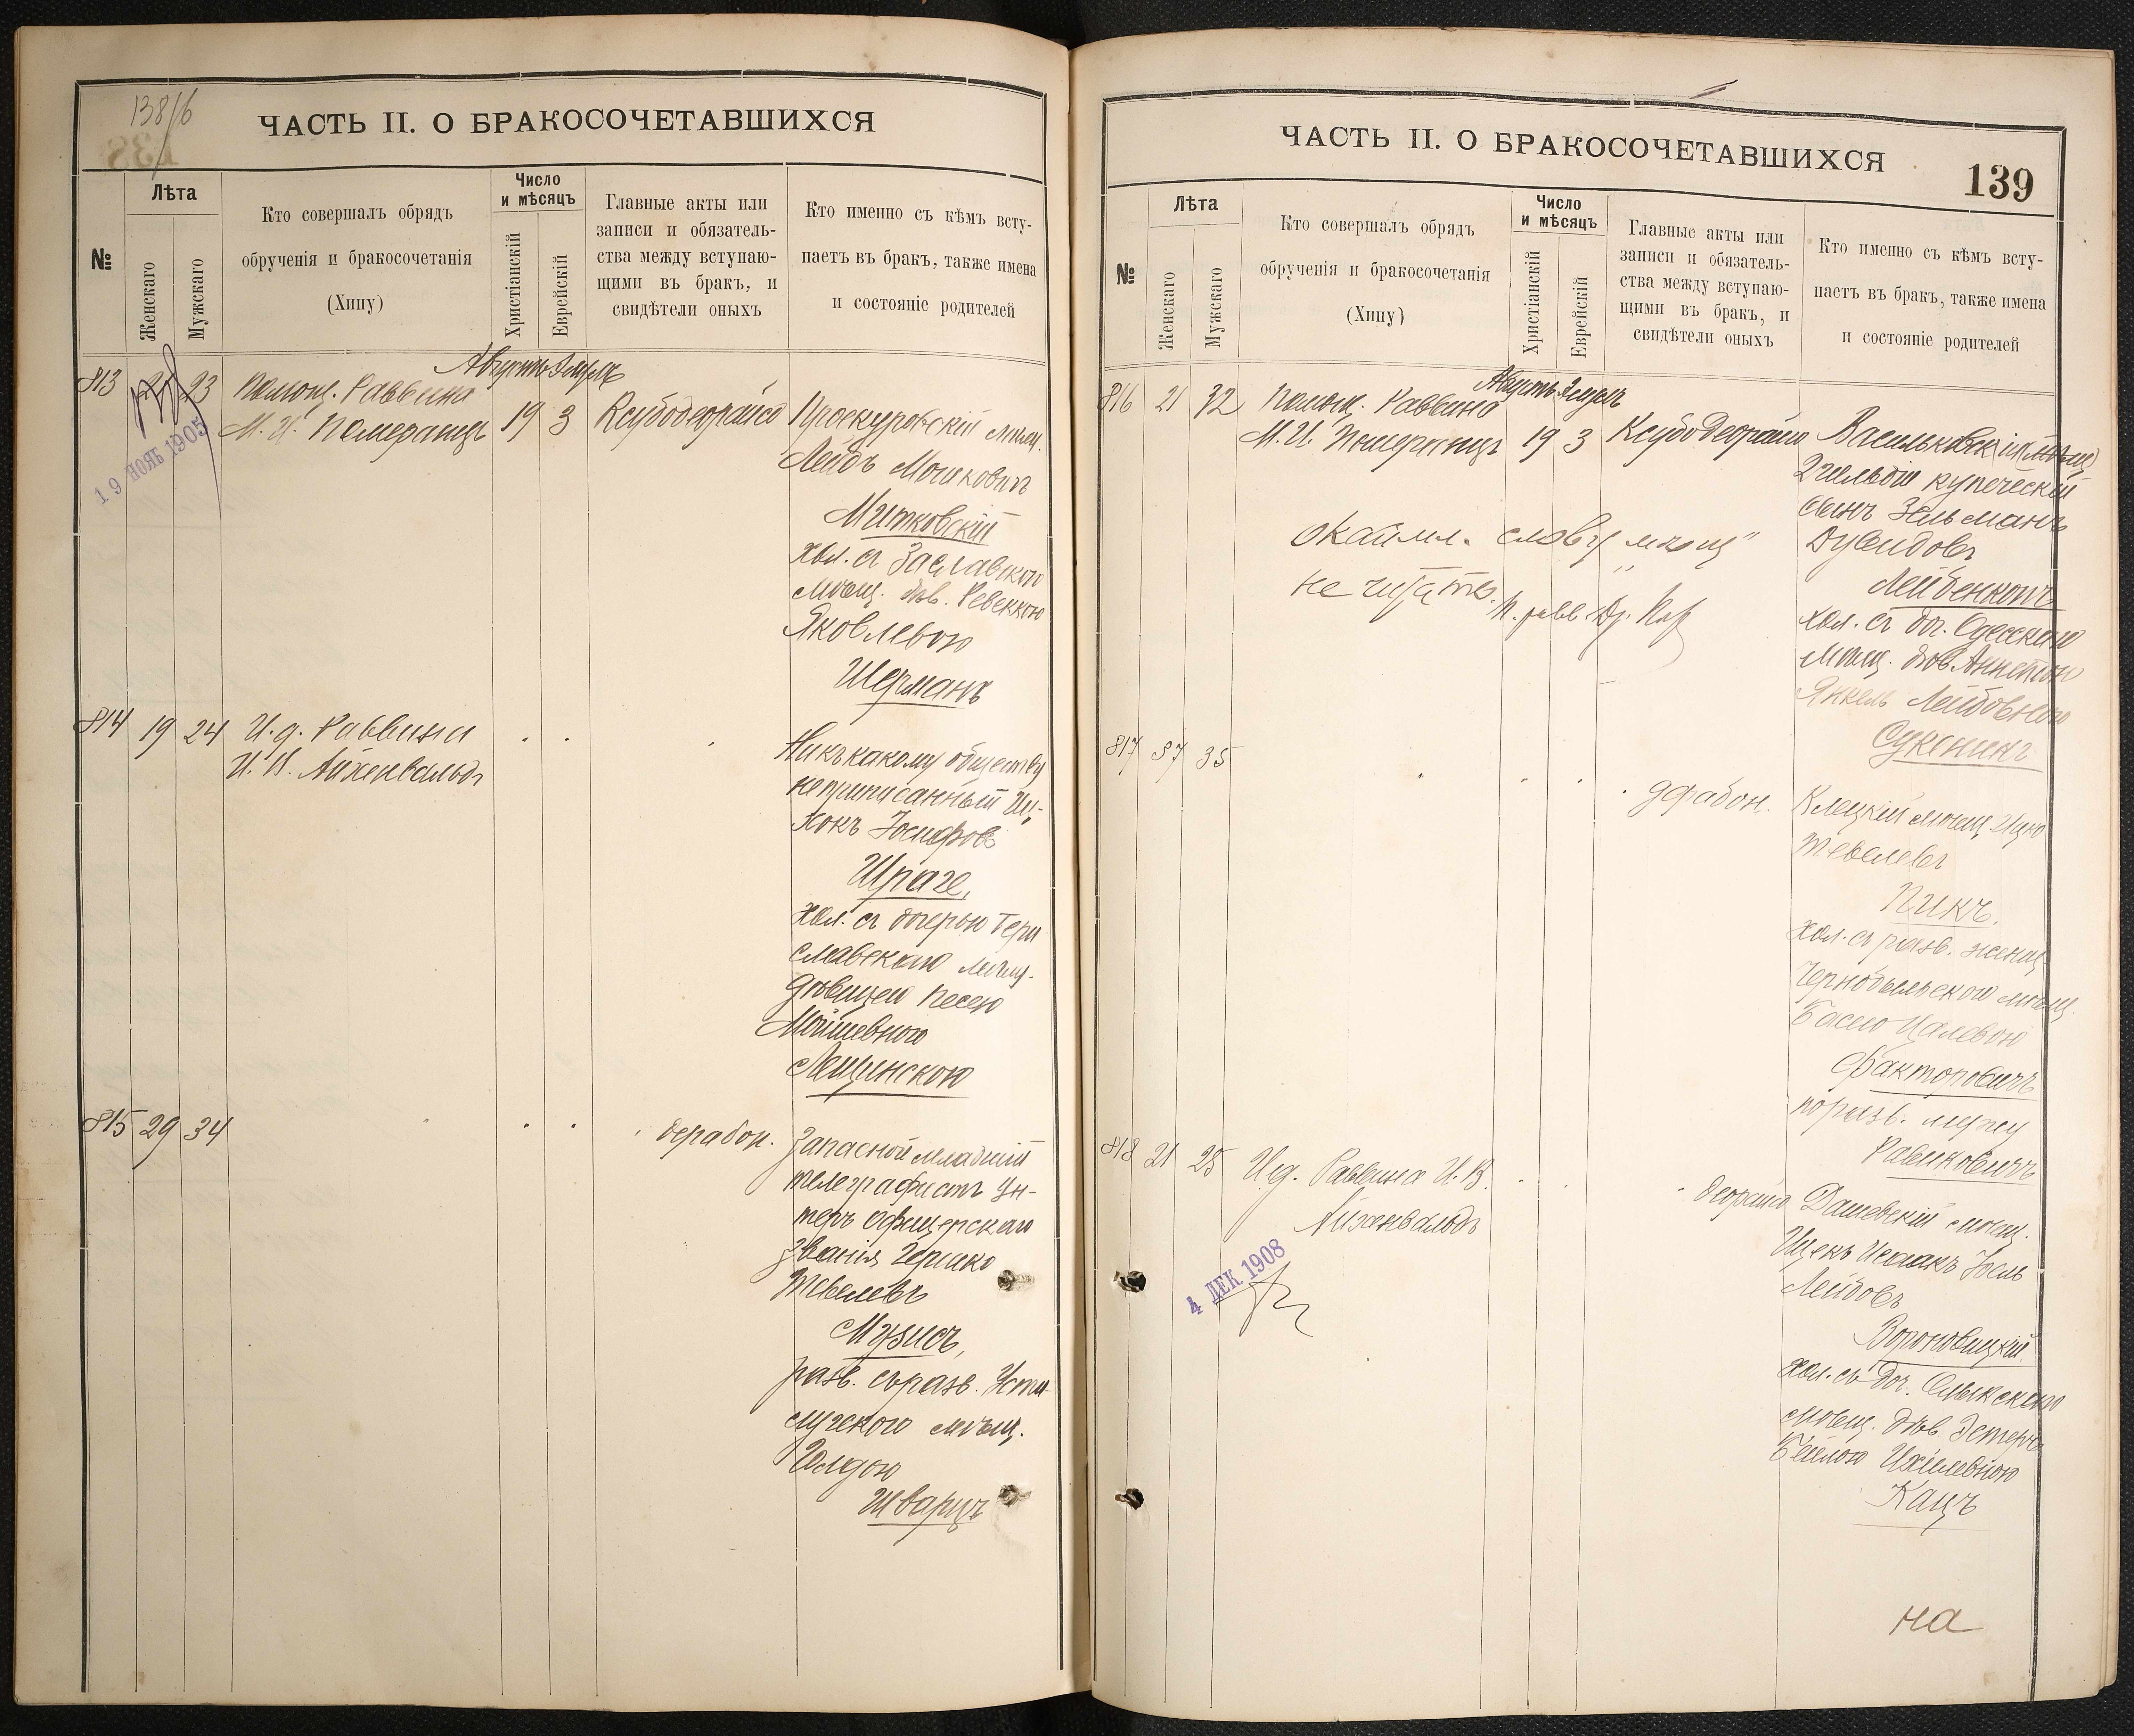 138/б
ЧАСТЬ II. О БРАКОСОЧЕТАВШИХСЯ
№
Лѣта
Женскаго
Мужскаго
Кто совершалъ обрядъ
обрученія и бракосочетанія
(Хипу)
Число
и мѣсяцъ
Христіанскій
Еврейскій
Главные акты или
записи и обязатель-
ства между вступаю-
щими въ бракъ, и
свидѣтели оныхъ
Кто именно съ кѣмъ всту-
паетъ въ бракъ, также имена
и состояніе родителей
Августъ Элулъ
813 21 23 Помощ. Раввина
М. И. Померанцъ 19 3 Ксубодеорайсо
19 НОЯБ 1905
Проскуровскій мѣщ.
Лейдъ Мошковичъ
Митковскій
хол. съ Заславскою
мѣщ. дѣв. Ревеккою
Яковлевою
Шерманъ
814 19 24 И. д. Раввина
И. В. Айхенвальдъ
Никъ какому обществу
неприписанный Иц-
хокъ Іосифовъ
Шраге,
хол. съ дочерью Бери
славскаго мѣщ.
дѣвицею Песею
Мойшевною
Лещинскою
815 29 34
дерабон.
Запасной младшій
телеграфистъ ун-
теръ офицерскаго
званія Гершко
Тевелевъ
Музисъ,
разв. съ разв. Усти
лугского мѣщ.
Голдою
Шварцъ
ЧАСТЬ II. О БРАКОСОЧЕТАВШИХСЯ
139
№
Лѣта
Женскаго
Мужскаго
Кто совершалъ обрядъ
обрученія и бракосочетанія
(Хипу)
Число
и мѣсяцъ
Христіанскій
Еврейскій
Главные акты или
записи и обязатель-
ства между вступаю-
щими въ бракъ, и
свидѣтели оныхъ
Кто именно съ кѣмъ всту-
паетъ въ бракъ, также имена
и состояніе родителей
Августъ Элулъ
816 21 32 Помощ. Раввина
М. И. Померанцъ 19 3 Ксубо Деорайсо
окаймл. слову „мѣщ“
не читать.
Васильковскій (мѣщ)
2 гильдіи купеческій
сынъ Зельманъ
Дувидовъ
Лейбенконъ
хол. съ доч. Одесскаго
мѣщ. дѣв. Аннетою
Янкель Лейбовною
Суконикъ
817 37 35
дерабон.
Клецкій мѣщ. Ицко
Тевелевъ
Пикъ,
хол. съ разв. женщ.
Чернобыльскою мѣщ.
Басею Цалевою
Факторовичъ
по разв. мужу
Равиковичъ
818 21 25 И. д. Раввина И. В.
Айхенвальдъ
4 ДЕК 1908
деорайсо
Дашевскій мѣщ.
Ицекъ Исаакъ Іоель
Лейбовъ
Вороновицкій
хол. съ доч. Олыкскаго
мѣщ. дѣв. Эстеръ
Бейлою Ихилевною
Кацъ
на